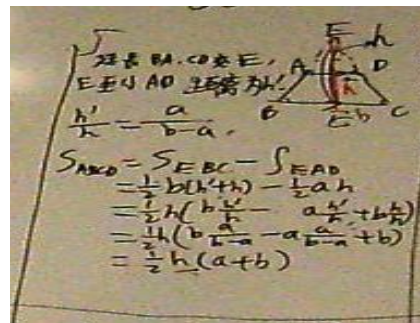 延长 BA.CD交E,
E至AD 距离为h'.
h'/h = a/b-a,
S_ABCD = S_EBC - S_EAD
= 1/2 b(h'+h) - 1/2 a h
= 1/2 h(b h'/h - a h'/h + b h/h)
= 1/2 h(b a/b-a - a a/b-a + b)
= 1/2 h(a+b)
E
h
A
D
h
B
E
b
C